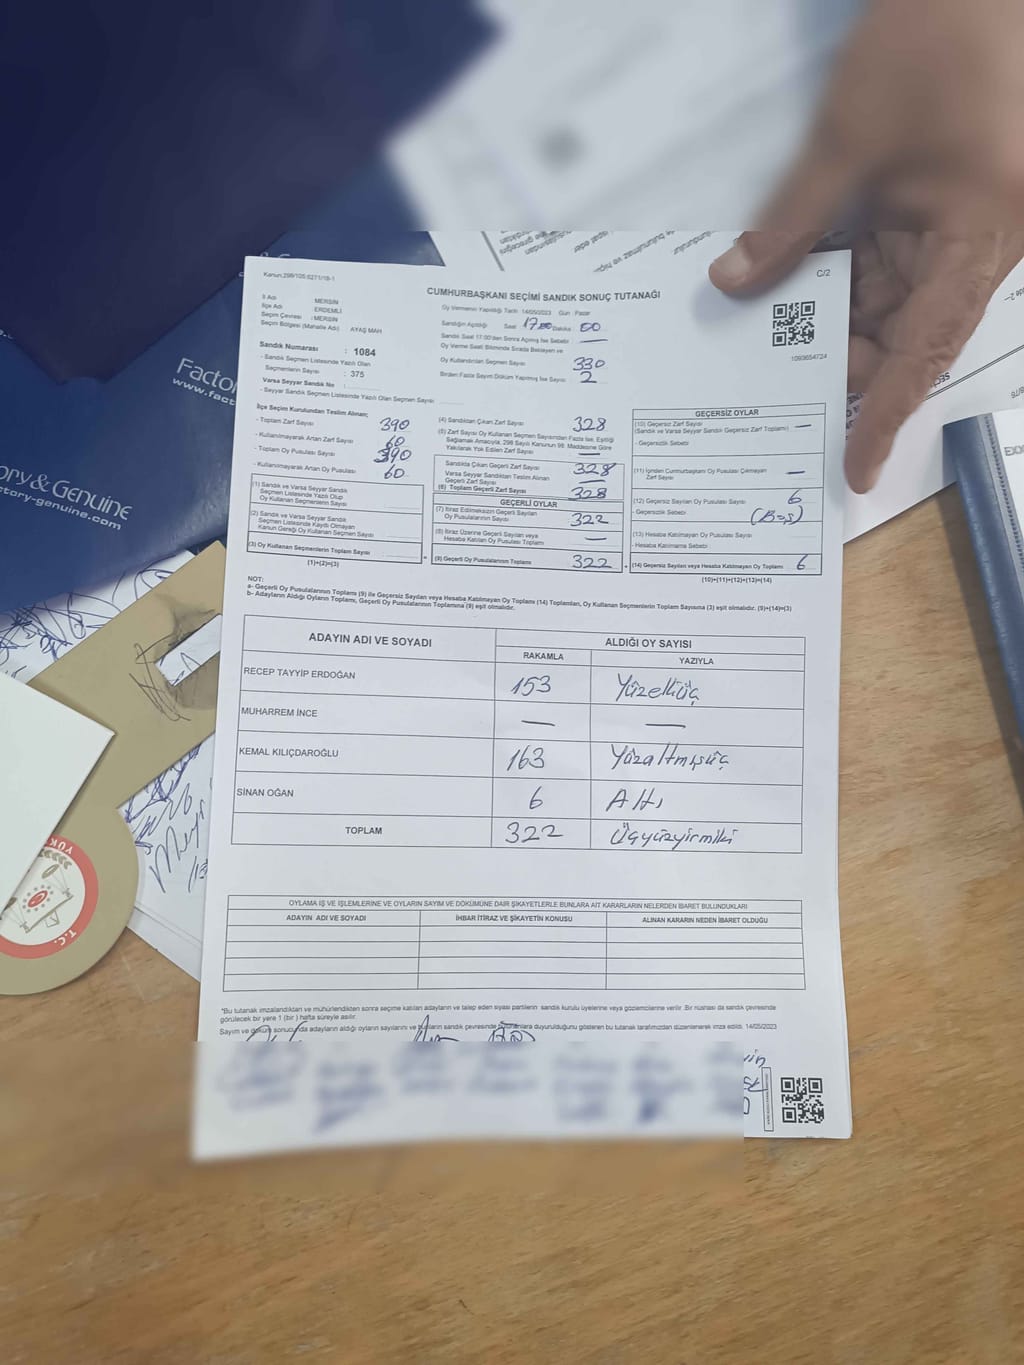 Kanun:298/105:6271/18-1
C/2
CUMHURBAŞKANI SEÇİMİ SANDIK SONUÇ TUTANAĞI
İl Adı MERSİN
İlçe Adı ERDEMLİ
Seçim Çevresi :MERSİN
Seçim Bölgesi (Mahalle Adı) AYAŞ MAH
Sandık Numarası : 1084
- Sandık Seçmen Listesinde Yazılı Olan
Seçmenlerin Sayısı : 375
Varsa Seyyar Sandık No :
- Seyyar Sandık Seçmen Listesinde Yazılı Olan Seçmen Sayısı
Oy Vermenin Yapıldığı Tarih 14/05/2023 Gün : Pazar
Sandığın Açıldığı Saat 17.00 Dakika 00
Sandık Saat 17:00'den Sonra Açılmış İse Sebebi : —
Oy Verme Saati Bitiminde Sırada Bekleyen ve
Oy Kullandırılan Seçmen Sayısı 330
Birden Fazla Sayım Döküm Yapılmış İse Sayısı 2
1093654724
İlçe Seçim Kurulundan Teslim Alınan;
- Toplam Zarf Sayısı 390
- Kullanılmayarak Artan Zarf Sayısı 60
- Toplam Oy Pusulası Sayısı 390
- Kullanılmayarak Artan Oy Pusulası 60
(1) Sandık ve Varsa Seyyar Sandık
Seçmen Listesinde Yazılı Olup
Oy Kullanan Seçmenlerin Sayısı
(2) Sandık ve Varsa Seyyar Sandık
Seçmen Listesinde Kayıtlı Olmayan
Kanun Gereği Oy Kullanan Seçmen Sayısı
(3) Oy Kullanan Seçmenlerin Toplam Sayısı
(1)+(2)=(3)
(4) Sandıktan Çıkan Zarf Sayısı 328
(5) Zarf Sayısı Oy Kullanan Seçmen Sayısından Fazla İse, Eşitliği
Sağlamak Amacıyla, 298 Sayılı Kanunun 98. Maddesine Göre
Yakılarak Yok Edilen Zarf Sayısı —
Sandıkta Çıkan Geçerli Zarf Sayısı 328
Varsa Seyyar Sandıktan Teslim Alınan
Geçerli Zarf Sayısı —
(6) Toplam Geçerli Zarf Sayısı 328
GEÇERLİ OYLAR
(7) İtiraz Edilmeksizin Geçerli Sayılan
Oy Pusulalarının Sayısı 322
(8) İtiraz Üzerine Geçerli Sayılan veya
Hesaba Katılan Oy Pusulası Toplamı —
(9) Geçerli Oy Pusulalarının Toplamı 322
GEÇERSİZ OYLAR
(10) Geçersiz Zarf Sayısı
(Sandık ve Varsa Seyyar Sandık Geçersiz Zarf Toplamı) —
- Geçersizlik Sebebi
(11) İçinden Cumhurbaşkanı Oy Pusulası Çıkmayan
Zarf Sayısı —
(12) Geçersiz Sayılan Oy Pusulası Sayısı 6
- Geçersizlik Sebebi
(13) Hesaba Katılmayan Oy Pusulası Sayısı
- Hesaba Katılmama Sebebi
(14) Geçersiz Sayılan veya Hesaba Katılmayan Oy Toplamı 6
(10)+(11)+(12)+(13)=(14)
NOT:
a- Geçerli Oy Pusulalarının Toplamı (9) ile Geçersiz Sayılan veya Hesaba Katılmayan Oy Toplamı (14) Toplamları, Oy Kullanan Seçmenlerin Toplam Sayısına (3) eşit olmalıdır. (9)+(14)=(3)
b- Adayların Aldığı Oyların Toplamı, Geçerli Oy Pusulalarının Toplamına (9) eşit olmalıdır.
ADAYIN ADI VE SOYADI ALDIĞI OY SAYISI
RAKAMLA YAZIYLA
RECEP TAYYİP ERDOĞAN 153 Yüzelliüç
MUHARREM İNCE — —
KEMAL KILIÇDAROĞLU 163 Yüzaltmışüç
SİNAN OĞAN 6 Altı
TOPLAM 322 Üçyüzyirmiiki
OYLAMA İŞ VE İŞLEMLERİNE VE OYLARIN SAYIM VE DÖKÜMÜNE DAİR ŞİKAYETLERLE BUNLARA AİT KARARLARIN NELERDEN İBARET BULUNDUKLARI
ADAYIN ADI VE SOYADI İHBAR İTİRAZ VE ŞİKAYETİN KONUSU ALINAN KARARIN NEDEN İBARET OLDUĞU
*Bu tutanak imzalandıktan ve mühürlendikten sonra seçime katılan adayların ve talep eden siyasi partilerin sandık kurulu üyelerine veya gözlemcilerine verilir. Bir nüshası da sandık çevresinde
görülecek bir yere 1 (bir) hafta süreyle asılır.
Sayım ve döküm sonucunda adayların aldığı oyların sayılarını ve bunların sandık çevresinde bulunanlara duyurulduğunu gösteren bu tutanak tarafımızdan düzenlenerek imza edildi. 14/05/2023
Factory & Genuine
factory-genuine.com
T.C.